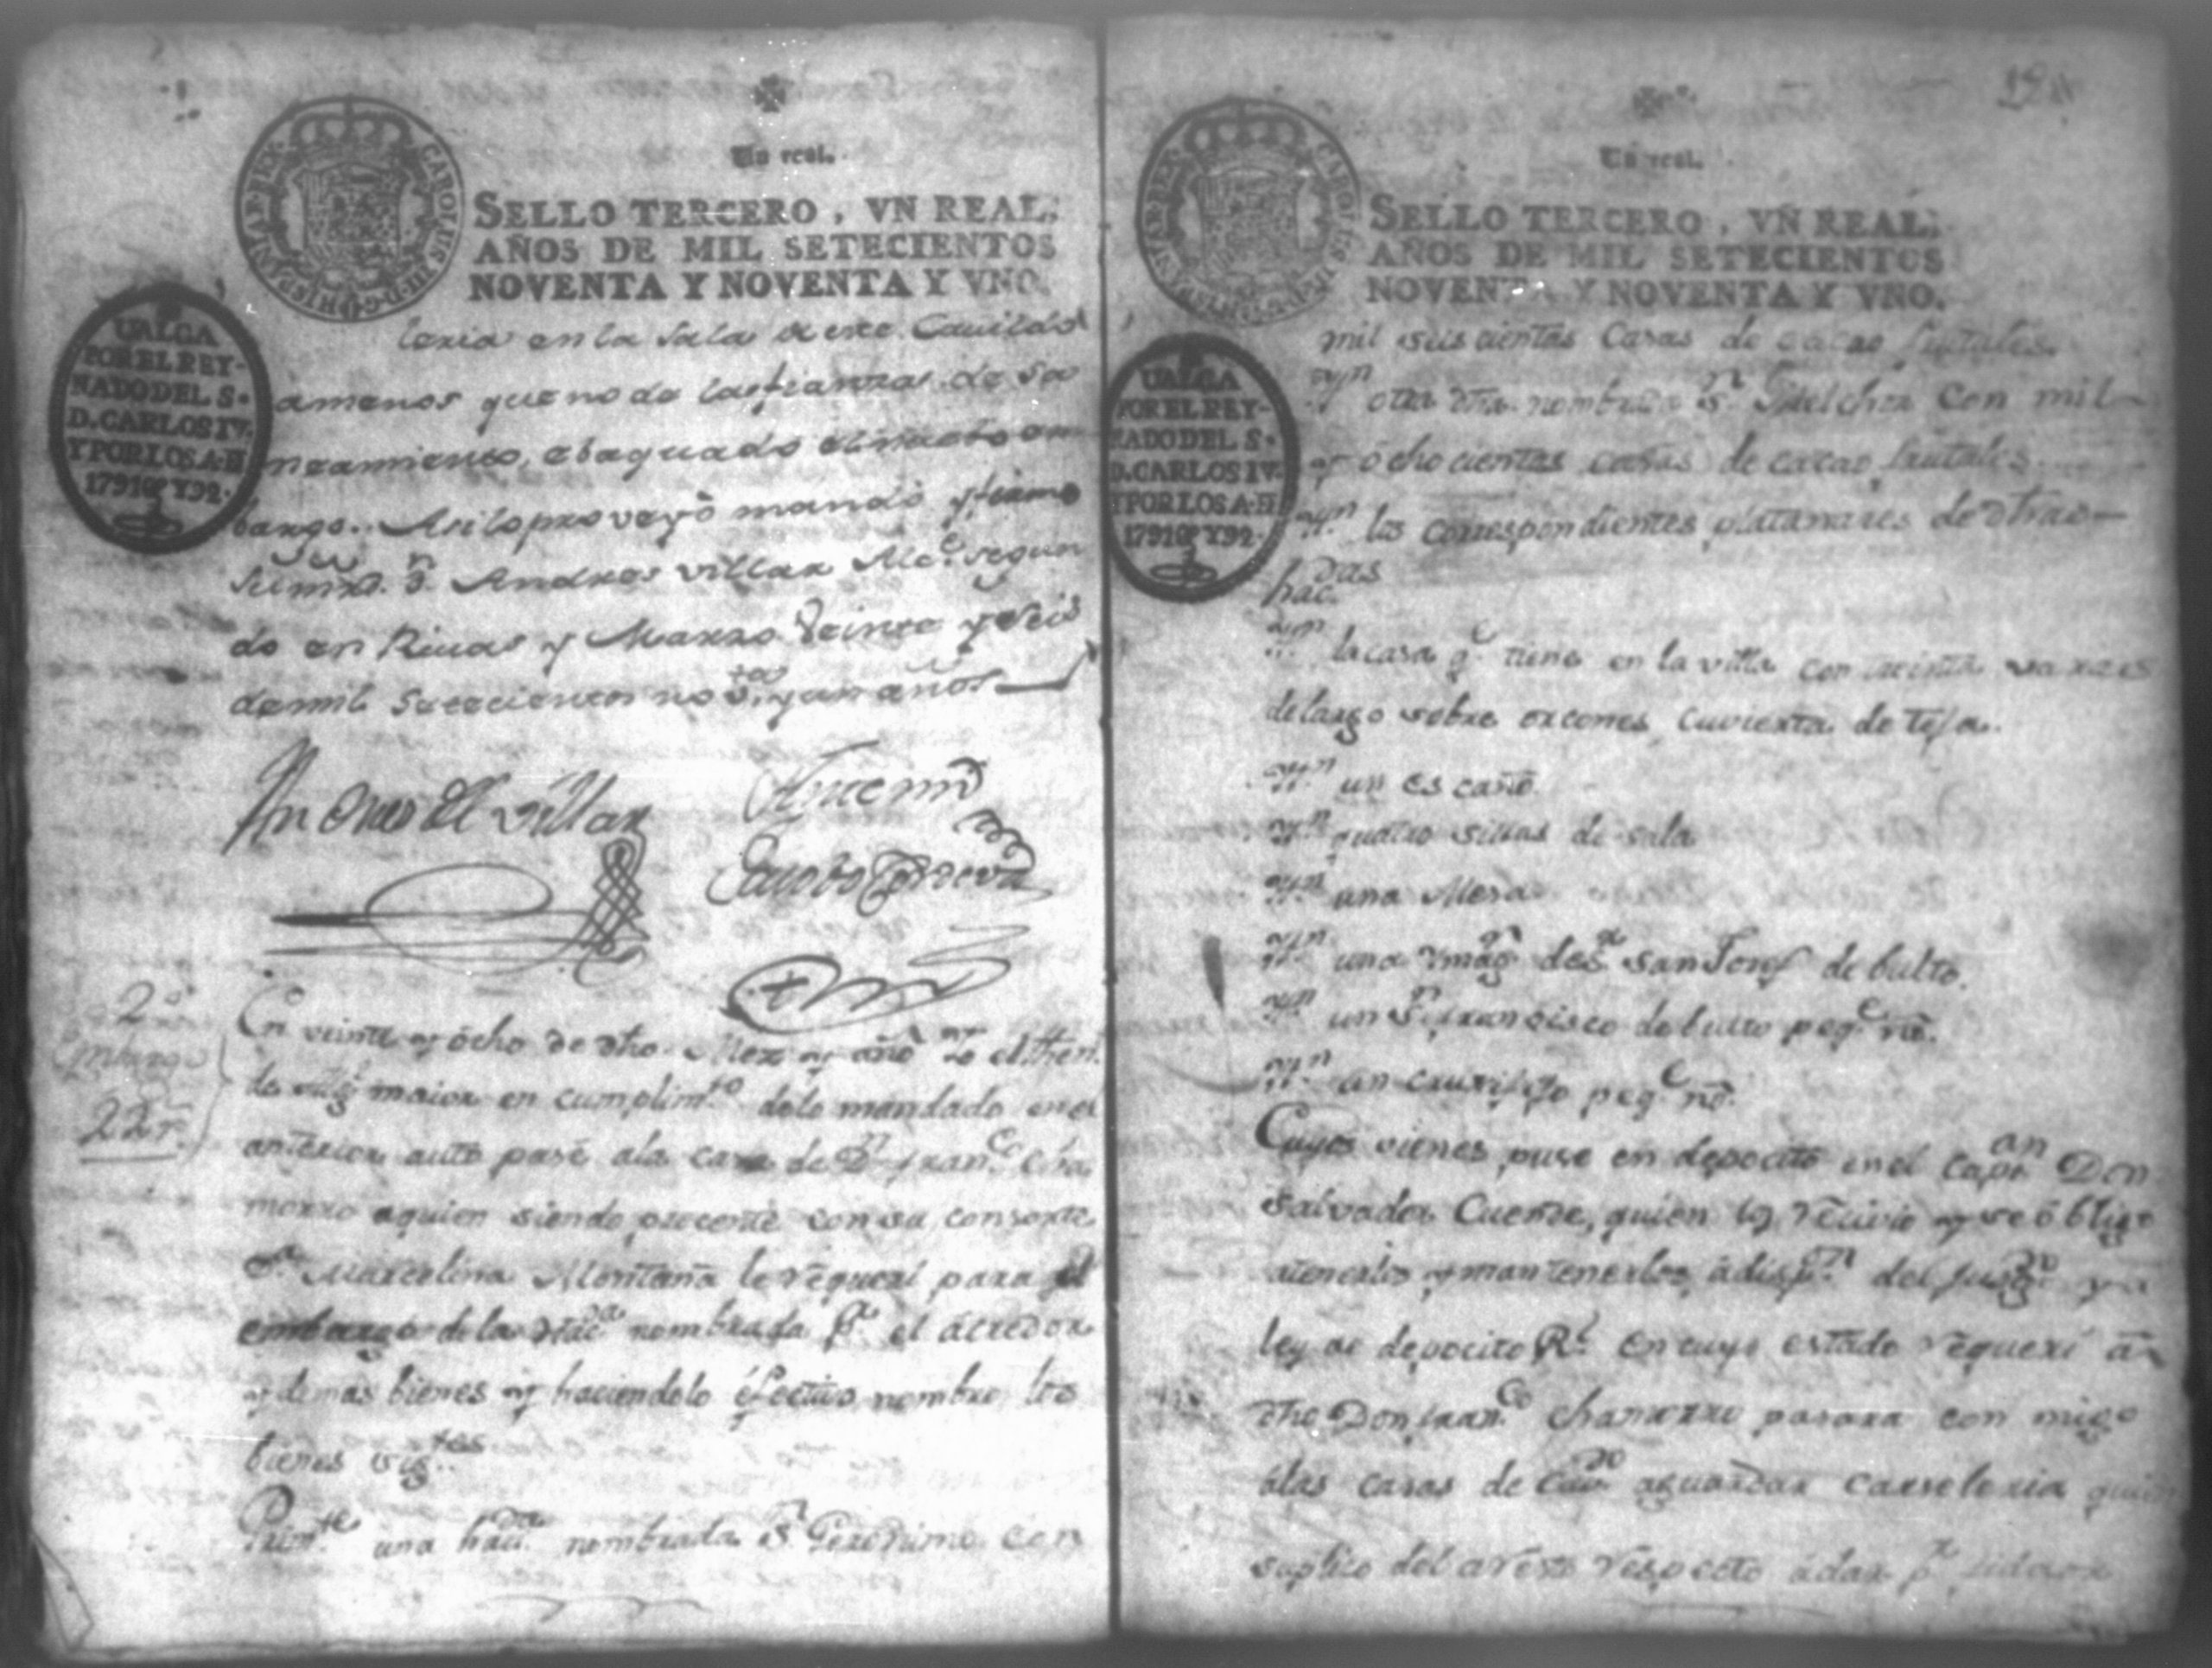 Un real.
SELLO TERCERO, VN REAL,
AÑOS DE MIL SETECIENTOS
NOVENTA Y NOVENTA Y VNO.
CAROLUS IIII D G HISPANIAR REX
UALGA
POR EL REY-
NADO DEL S.
D. CARLOS IV.
Y POR LOS A.
1791 Y 92.
leria en la sala de este Cavildo
amenos que no de las fianzas de sa
neamiento, evaquado el nuebo em
bargo. Asi lo proveyò mandò y firmo
su mrd. Dn. Andres villar Alce. segun
do en Rivas y Marzo Veinte y seis
de mil setecientos nov.ta y un años
Andres del Villar
Ante mi
Jacobo Cordova
2o
embargo
22 r.
En veinte y ocho de dho. Mez y año Yo el then.
de alg. maior en cumplim.to delo mandado en el
anterior auto pasé ala casa de Dn. Fran.co Cha
morro aquien siendo precente con su consorte
Da. Marcelina Montaña le requerí para el
embargo de la hac.da nombrada pr. el acredor
y demas bienes y haciendolo éfectivo nombro los
bienes sig.tes
Prim.te una hac.da nombrada Sn. Geronimo con
19
Un real.
SELLO TERCERO, VN REAL,
AÑOS DE MIL SETECIENTOS
NOVENTA Y NOVENTA Y VNO.
UALGA
POR EL REY-
NADO DEL S.
D. CARLOS IV.
Y POR LOS A.
1791 Y 92.
mil seiscientas Casas de cacao frutales.
Yt.n otra dha. nombrada Sn. Melchor con mil
y óchocientas casas de cacao frutales.
Yt.n los correspondientes platanares de dhas
hac.das
Yt.n la casa q.e tiene en la villa con treinta varas
de largo sobre orcones, cuvierta de teja.
Yt.n un escaño
Yt.n quatro sillas de sala
Yt.n una Mesa
Yt.n una ymag.n de Sr. san Josef de bulto.
Yt.n un Sn. francisco de bulto peq.eño.
Yt.n un cruxifixo peq.eño.
Cuyos vienes puse en depocito en el Capi.an Don
Salvador Cuende, quien los recivio y se óbligo
atenerlos y mantenerlos, àdisp.on del Juzg.do y a
ley de depocito Rl. en cuyo estado requerí à
dho Don fran.co Chamorro pasara con migo
àlas casas de Cav.do aguardar carseleria quien
suplico del aresto respecto àdar pr. fiador